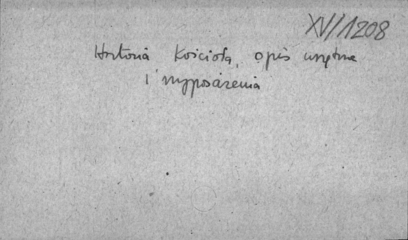 XV/1208
Historia Kościoła, opis wnętrza
i wyposażenia